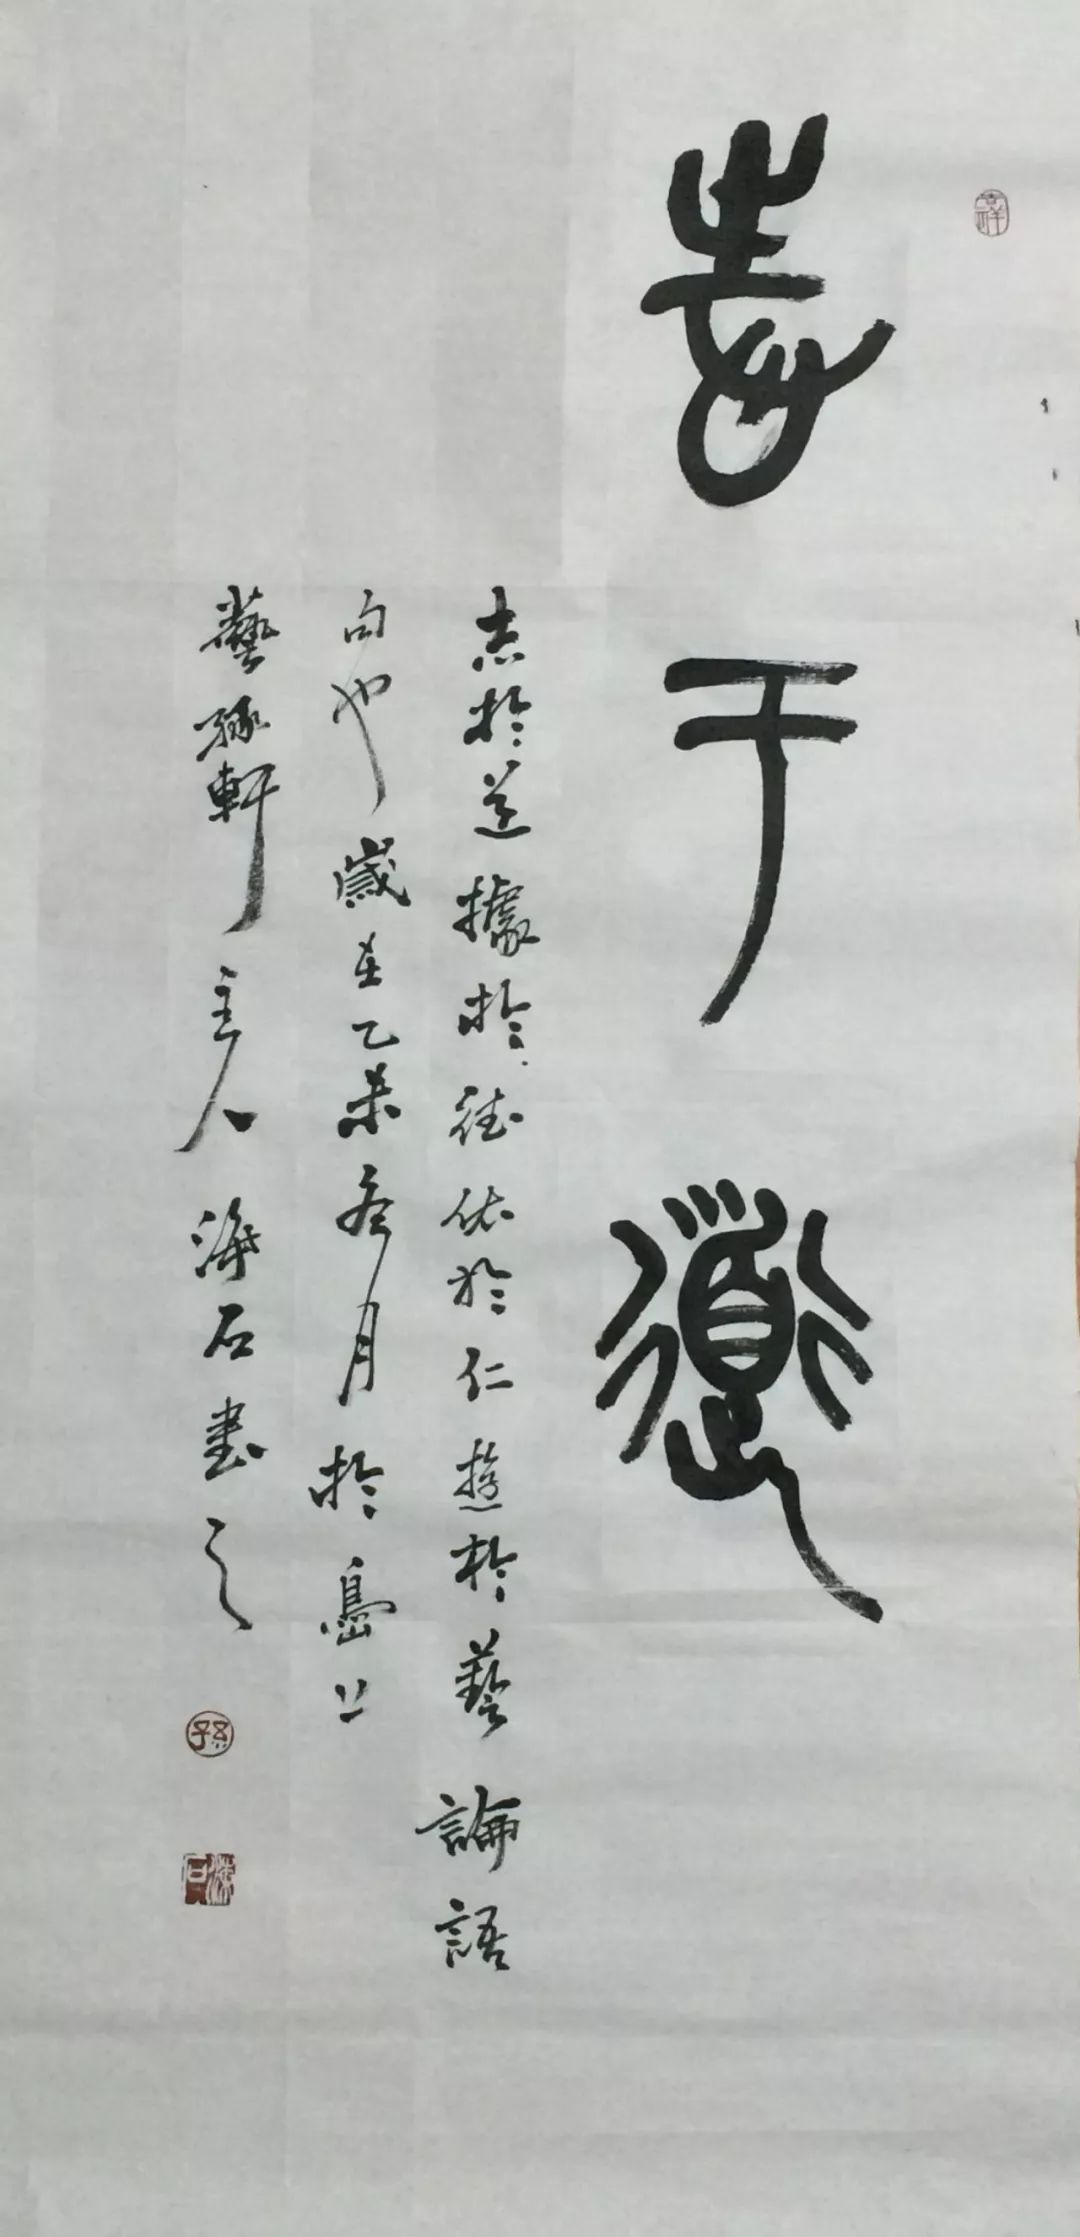 志于道
志於道據於德依於仁遊於藝論語
句也歲在乙未冬月於島上
藝稼軒主人海石書之
吉祥
孫
海石